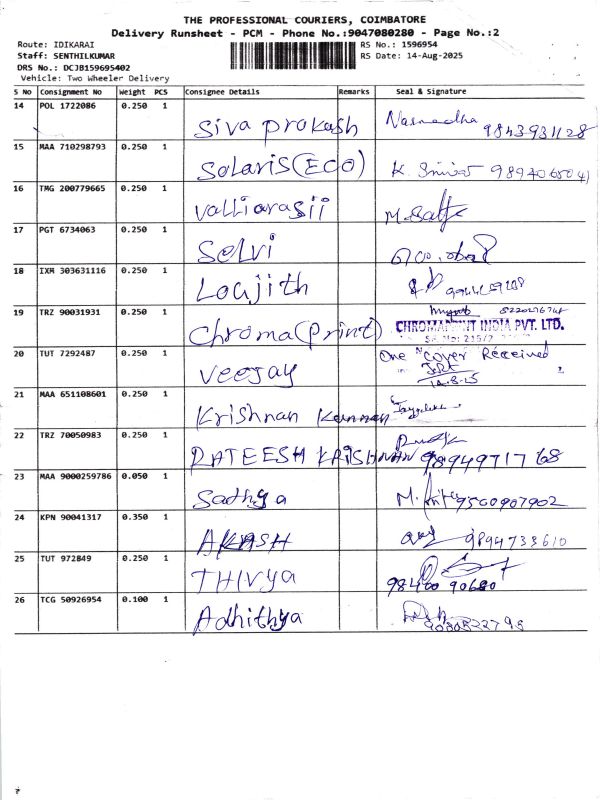 THE PROFESSIONAL COURIERS, COIMBATORE
Delivery Runsheet - PCM - Phone No.:9047080280 - Page No.:2
Route: IDIKARAI RS No.: 1596954
Staff: SENTHILKUMAR RS Date: 14-Aug-2025
DRS No.: DCJB159695402
Vehicle: Two Wheeler Delivery
S No Consignment No Weight PCS Consignee Details Remarks Seal & Signature
14 POL 1722086 0.250 1 Siva prakash 9843931128
15 MAA 710298793 0.250 1 Solaris(ECO) K.
16 TMG 200779665 0.250 1 valliarasii
17 PGT 6734063 0.250 1 Selvi
18 IXM 303631116 0.250 1 Loajith
19 TRZ 90031931 0.250 1 Chroma(Print) CHROMAPRINT INDIA PVT. LTD.
20 TUT 7292487 0.250 1 Veejay One cover Received
14.8.25
21 MAA 651108601 0.250 1 Krishnan Kannan
22 TRZ 70050983 0.250 1 RATEESH KRISHNAN 9894971768
23 MAA 9000259786 0.050 1 Sadhya M. 9500907902
24 KPN 90041317 0.350 1 AKASH 9894733610
25 TUT 972849 0.250 1 THIVya 98400 90680
26 TCG 50926954 0.100 1 Adhithya